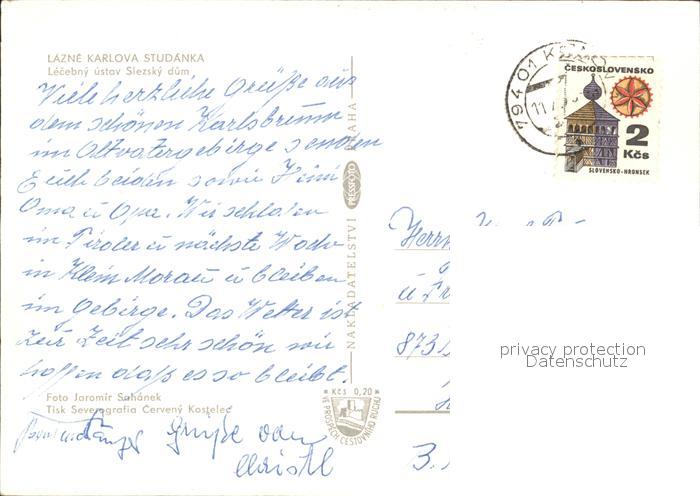 LÁZNĚ KARLOVA STUDÁNKA
Léčebný ústav Slezský dům
Viele herzliche Grüße aus
dem schönen Karlsbrunn
im Altvatergebirge senden
Euch beiden sowie Heini
Oma u Opa. Wir schlafen
im Tiroler u nächste Woche
in Klein Morau u bleiben
im Gebirge. Das Wetter ist
zur Zeit sehr schön wir
hoffen daß es so bleibt.
Foto Jaromír Suhánek
Tisk Severografia Červený Kostelec
Grüße von
Christl
NAKLADATELSTVÍ PRESSFOTO PRAHA
* Kčs 0,20 *
VE PROSPĚCH CESTOVNÍHO RUCHU
794 01 K
11.
ČESKOSLOVENSKO
2
Kčs
SLOVENSKO-HRONSEK
Herrn
u
873
B.
privacy protection
Datenschutz